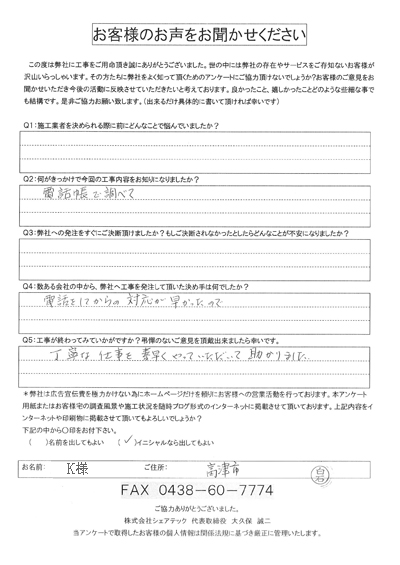 お客様のお声をお聞かせください
この度は弊社に工事をご用命頂き誠にありがとうございました。世の中には弊社の存在やサービスをご存知ないお客様が
沢山いらっしゃいます。その方たちに弊社をよく知って頂くためのアンケートにご協力頂けないでしょうか?お客様のご意見をお
聞かせいただき今後の活動に反映させていただきたいと考えております。良かったこと、嬉しかったことどのような些細な事で
も結構です。是非ご協力お願い致します。(出来るだけ具体的に書いて頂ければ幸いです)
Q1:施工業者を決められる際に前にどんなことで悩んでいましたか?
Q2:何がきっかけで今回の工事内容をお知りになりましたか?
電話帳で調べて
Q3:弊社への発注をすぐにご決断頂けましたか?もしご決断されなかったとしたらどんなことが不安になりましたか?
Q4:数ある会社の中から、弊社へ工事を発注して頂いた決め手は何でしたか?
電話をしてからの対応が早かったので
Q5:工事が終わってみていかがですか?忌憚のないご意見を頂戴出来ましたら幸いです。
丁寧な仕事を素早くやっていただいて助かりました。
*弊社は広告宣伝費を極力かけない為にホームページだけを頼りにお客様への営業活動を行っております。本アンケート
用紙またはお客様宅の調査風景や施工状況を随時ブログ形式のインターネットに掲載させて頂いております。上記内容をイ
ンターネットや印刷物に掲載させて頂いてもよろしいでしょうか?
下記の中から〇印をお付け下さい。
( )名前を出してもよい (✓)イニシャルなら出してもよい
お名前: K様 ご住所:
FAX 0438-60-7774
ご協力ありがとうございました。
株式会社シェアテック 代表取締役 大久保 誠二
当アンケートで取得したお客様の個人情報は関係法規に基づき厳正に管理いたします。